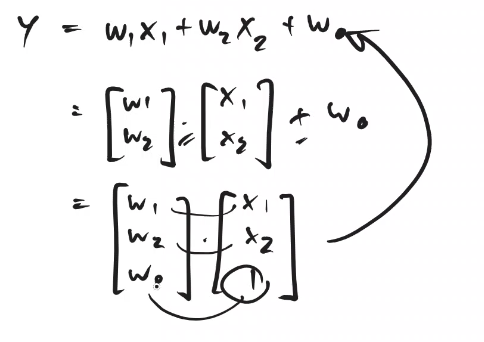 Y = w₁x₁ + w₂x₂ + w₀
= [w₁ w₂] · [x₁ x₂] + w₀
= [w₁ w₂ w₀] · [x₁ x₂ 1]